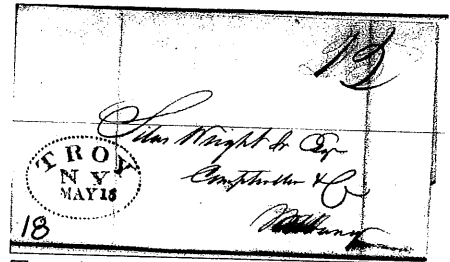 12
Silas Wright Jr Esqr
Comptroller &c
Albany
TROY
N Y
MAY 18
18